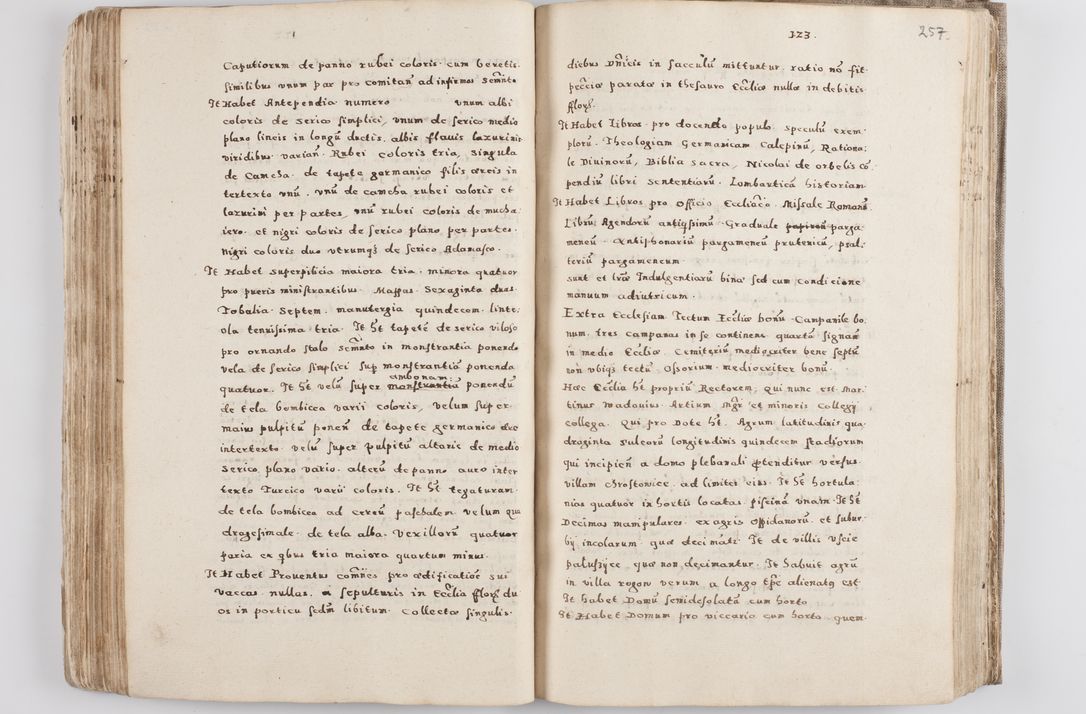 Caputiorum de panno rubei coloris cum beretis
similibus unum par pro comitan̄ ad infirmos Semñto
It Habet Antependia numero unum albi
coloris de serico simplici, unum de serico medio
plano lineis in longū ductis albis flavis lazurinis
viridibus varian̄. Rubei coloris tria, singula
de Camcha. de tapete germanico filis aureis in
tertexto unū. unū de camcha rubei coloris et
lazurini per partes, unū rubei coloris de mucha
iero. et nigri coloris de serico plano per partes.
Nigri coloris duo utrumq3 de serico Adamasco.
It Habet superpilicia maiora tria. minora quatuor
pro pueris ministrantibus. Mappas. Sexaginta duas.
Tobalia. Septem. manutergia quindecem. linte.
ola tenuissima tria. It ht tapetē de serico viloso
pro ornando stalo Semñto in monstrantia ponendo
vela de serico simplici sup monstrantiā ponenda
ambonam:
quatuor. It ht velū super monstrantiā ponendū
de tela bombicea varii coloris, velum super
maius pulpitū ponen̄ de tapete germanico aro
intertexto. velū super pulpitū altaris de medio
serico, plano vario. alterū de panno auro inter
texto Turcico varii coloris. It ht tegaturam
de tela bombicea ad cereū paschalem. velum qua
dragesimale. de tela alba. Vexillorū quatuor
paria ex qbus tria maiora quartum minus.
It Habet Proventus com̄nes pro ædificatiōe sui
vaccas nullas. a sepulturis in Ecclia flor3 du
os in porticu sedm̄ libitum. Collectæ singulis.
123.
257
diebus Dn̄icis in sacculū mittuntur. ratio nō fit
peccia parata in thesauro Eccliæ nulla in debitis
flor3.
It Habet Libros pro docendo populo. speculū exem
plorū. Theologiam Germanicam Calepinū, Rationa
le Divinorū, Biblia sacra, Nicolai de orbelis cō
pendiū libri sententiarū. Lombarticā historiam
It Habet Libros pro Officio Eccliaco. Missale Romanū.
Librū Agendorū antiqissimū. Graduale papireū parga
meneū. Antiphonariū pargameneū prutericū, psal
teriū pargameneum
sunt et lræ Indulgentiarū binæ sed cum condicione
manuum adiutricum.
Extra Ecclesiam Tectum Eccliæ bonū. Campanile bo
num. tres campanas in se continens quartā signan̄
in medio Eccliæ. Cemiteriū mediocriter bene septū
non ubiq3 tectū. Ossorium. mediocriter bonū.
Hæc Ecclia ht propriū Rectorem, qui nunc est. Mar
tinus Wadovius. Artium Mgr et minoris Collegij
collega. Qui pro Dote ht. Agrum latitudinis qua
draginta sulcorū longitudinis quindecem stadiorum
qui incipien̄ a domo plebanali ptenditur versus
villam Chrostowice. ad limites eius. It ht hortula
nias quatuor in hortis locatas. piscinā unam. It ht
Decimas manipulares. ex agris Oppidanorū. et subur
bij incolarum. quæ decimātr. It de villis Uscie
palussijce. quæ non decimantur. It habuit agrū
in villa rogow verum a longo tpē alienatq est
It habet Domū semidesolatā cum horto
It Habet Domum pro viccario cum horto. quem